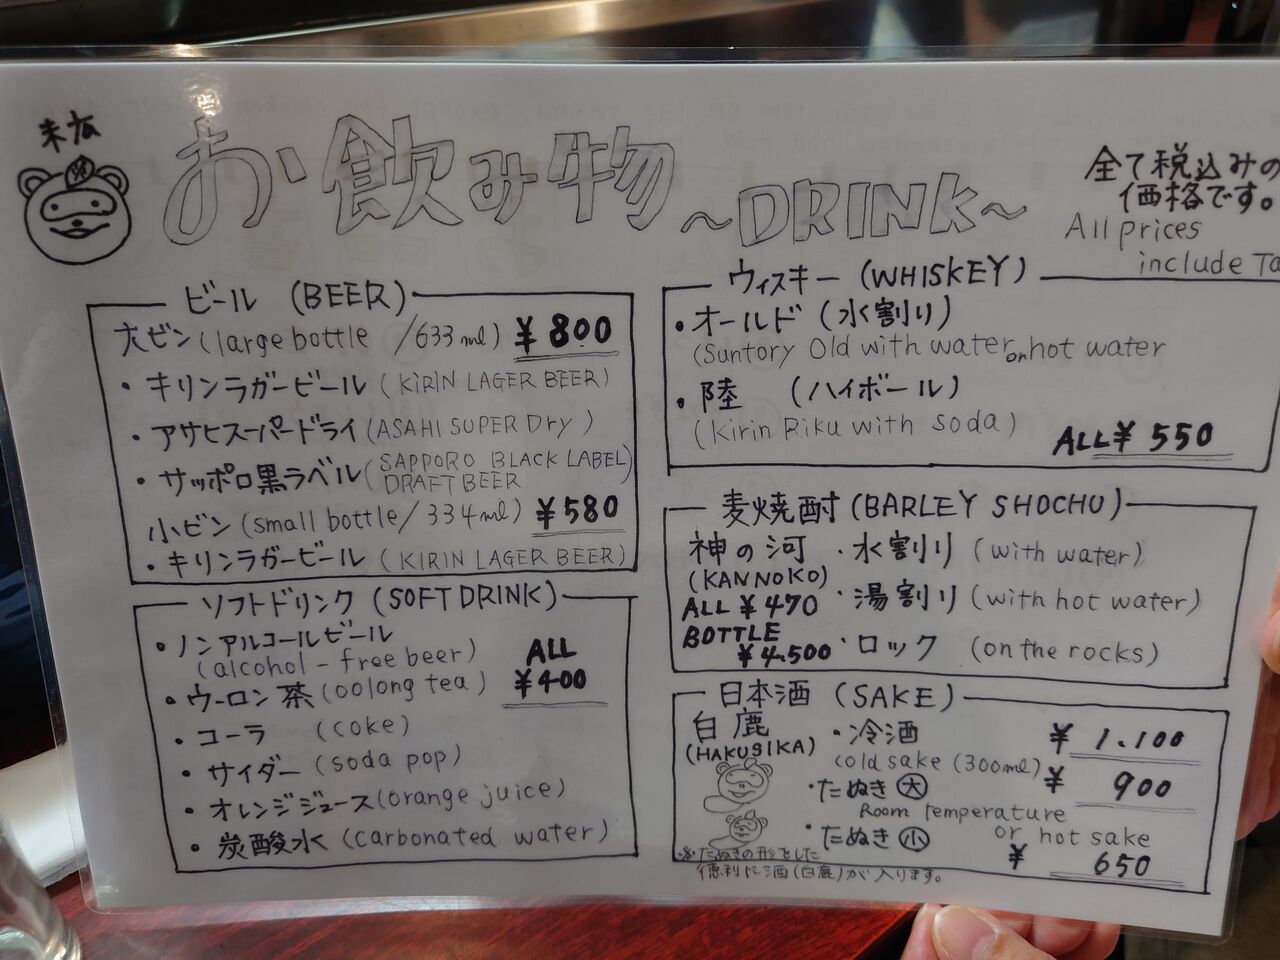 お飲み物 ~DRINK~
全て税込みの
価格です。
All prices
include Ta
ビール (BEER)
大ビン (large bottle /633ml) ¥800
・キリンラガービール (KIRIN LAGER BEER)
・アサヒスーパードライ (ASAHI SUPER Dry)
・サッポロ黒ラベル (SAPPORO BLACK LABEL)
DRAFT BEER
小ビン (small bottle/334ml) ¥580
・キリンラガービール (KIRIN LAGER BEER)
ソフトドリンク (SOFT DRINK)
・ノンアルコールビール
(alcohol-free beer)
ALL
¥400
・ウーロン茶 (oolong tea)
・コーラ (coke)
・サイダー (soda pop)
・オレンジジュース (orange juice)
・炭酸水 (carbonated water)
ウィスキー (WHISKEY)
・オールド (水割り)
(Suntory Old with water or hot water
・陸 (ハイボール)
(Kirin Riku with soda)
ALL ¥550
麦焼酎 (BARLEY SHOCHU)
神の河 ・水割り (with water)
(KANNOKO)
ALL ¥470 ・湯割り (with hot water)
BOTTLE
¥4,500 ・ロック (on the rocks)
日本酒 (SAKE)
白鹿 ・冷酒 ¥1,100
(HAKUSIKA)
cold sake (300ml)
・たぬき 大 ¥900
Room temperature
or hot sake
・たぬき 小 ¥650
※たぬきの形をした
徳利に酒(白鹿)が入ります。